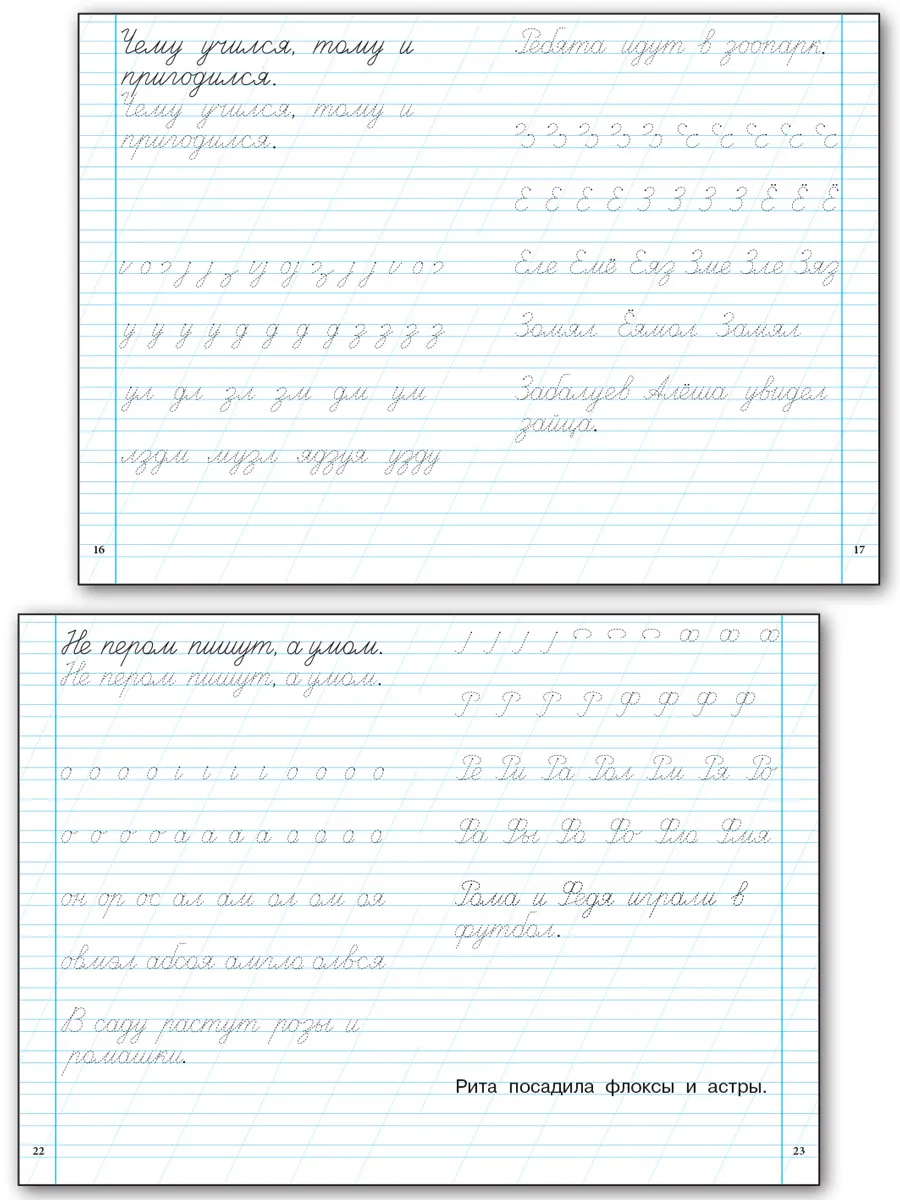 Чему учился, тому и
пригодился.
Чему учился, тому и
пригодился.
у у у у д д д д з з з з
ул дл зл зм дм ум
лздм музл ядзуя узду
16
Ребята идут в зоопарк.
Е Е Е Е З З З З Ё Ё Ё
Еле Емё Еяз Зме Зле Зяз
Зомял Ёямол Замял
Забалуев Алёша увидел
зайца.
17
Не пером пишут, а умом.
Не пером пишут, а умом.
о о о о ι ι ι ι о о о о
о о о о а а а а а а а а
он ор ос ал ам ол ом оя
овмэл абсоя амгло олвся
В саду растут розы и
ромашки.
22
Р Р Р Р Ф Ф Ф Ф
Ре Ри Ра Рол Рм Ря Ро
Фа Фы Фа Фо Фло Фмя
Рома и Федя играли в
футбол.
Рита посадила флоксы и астры.
23